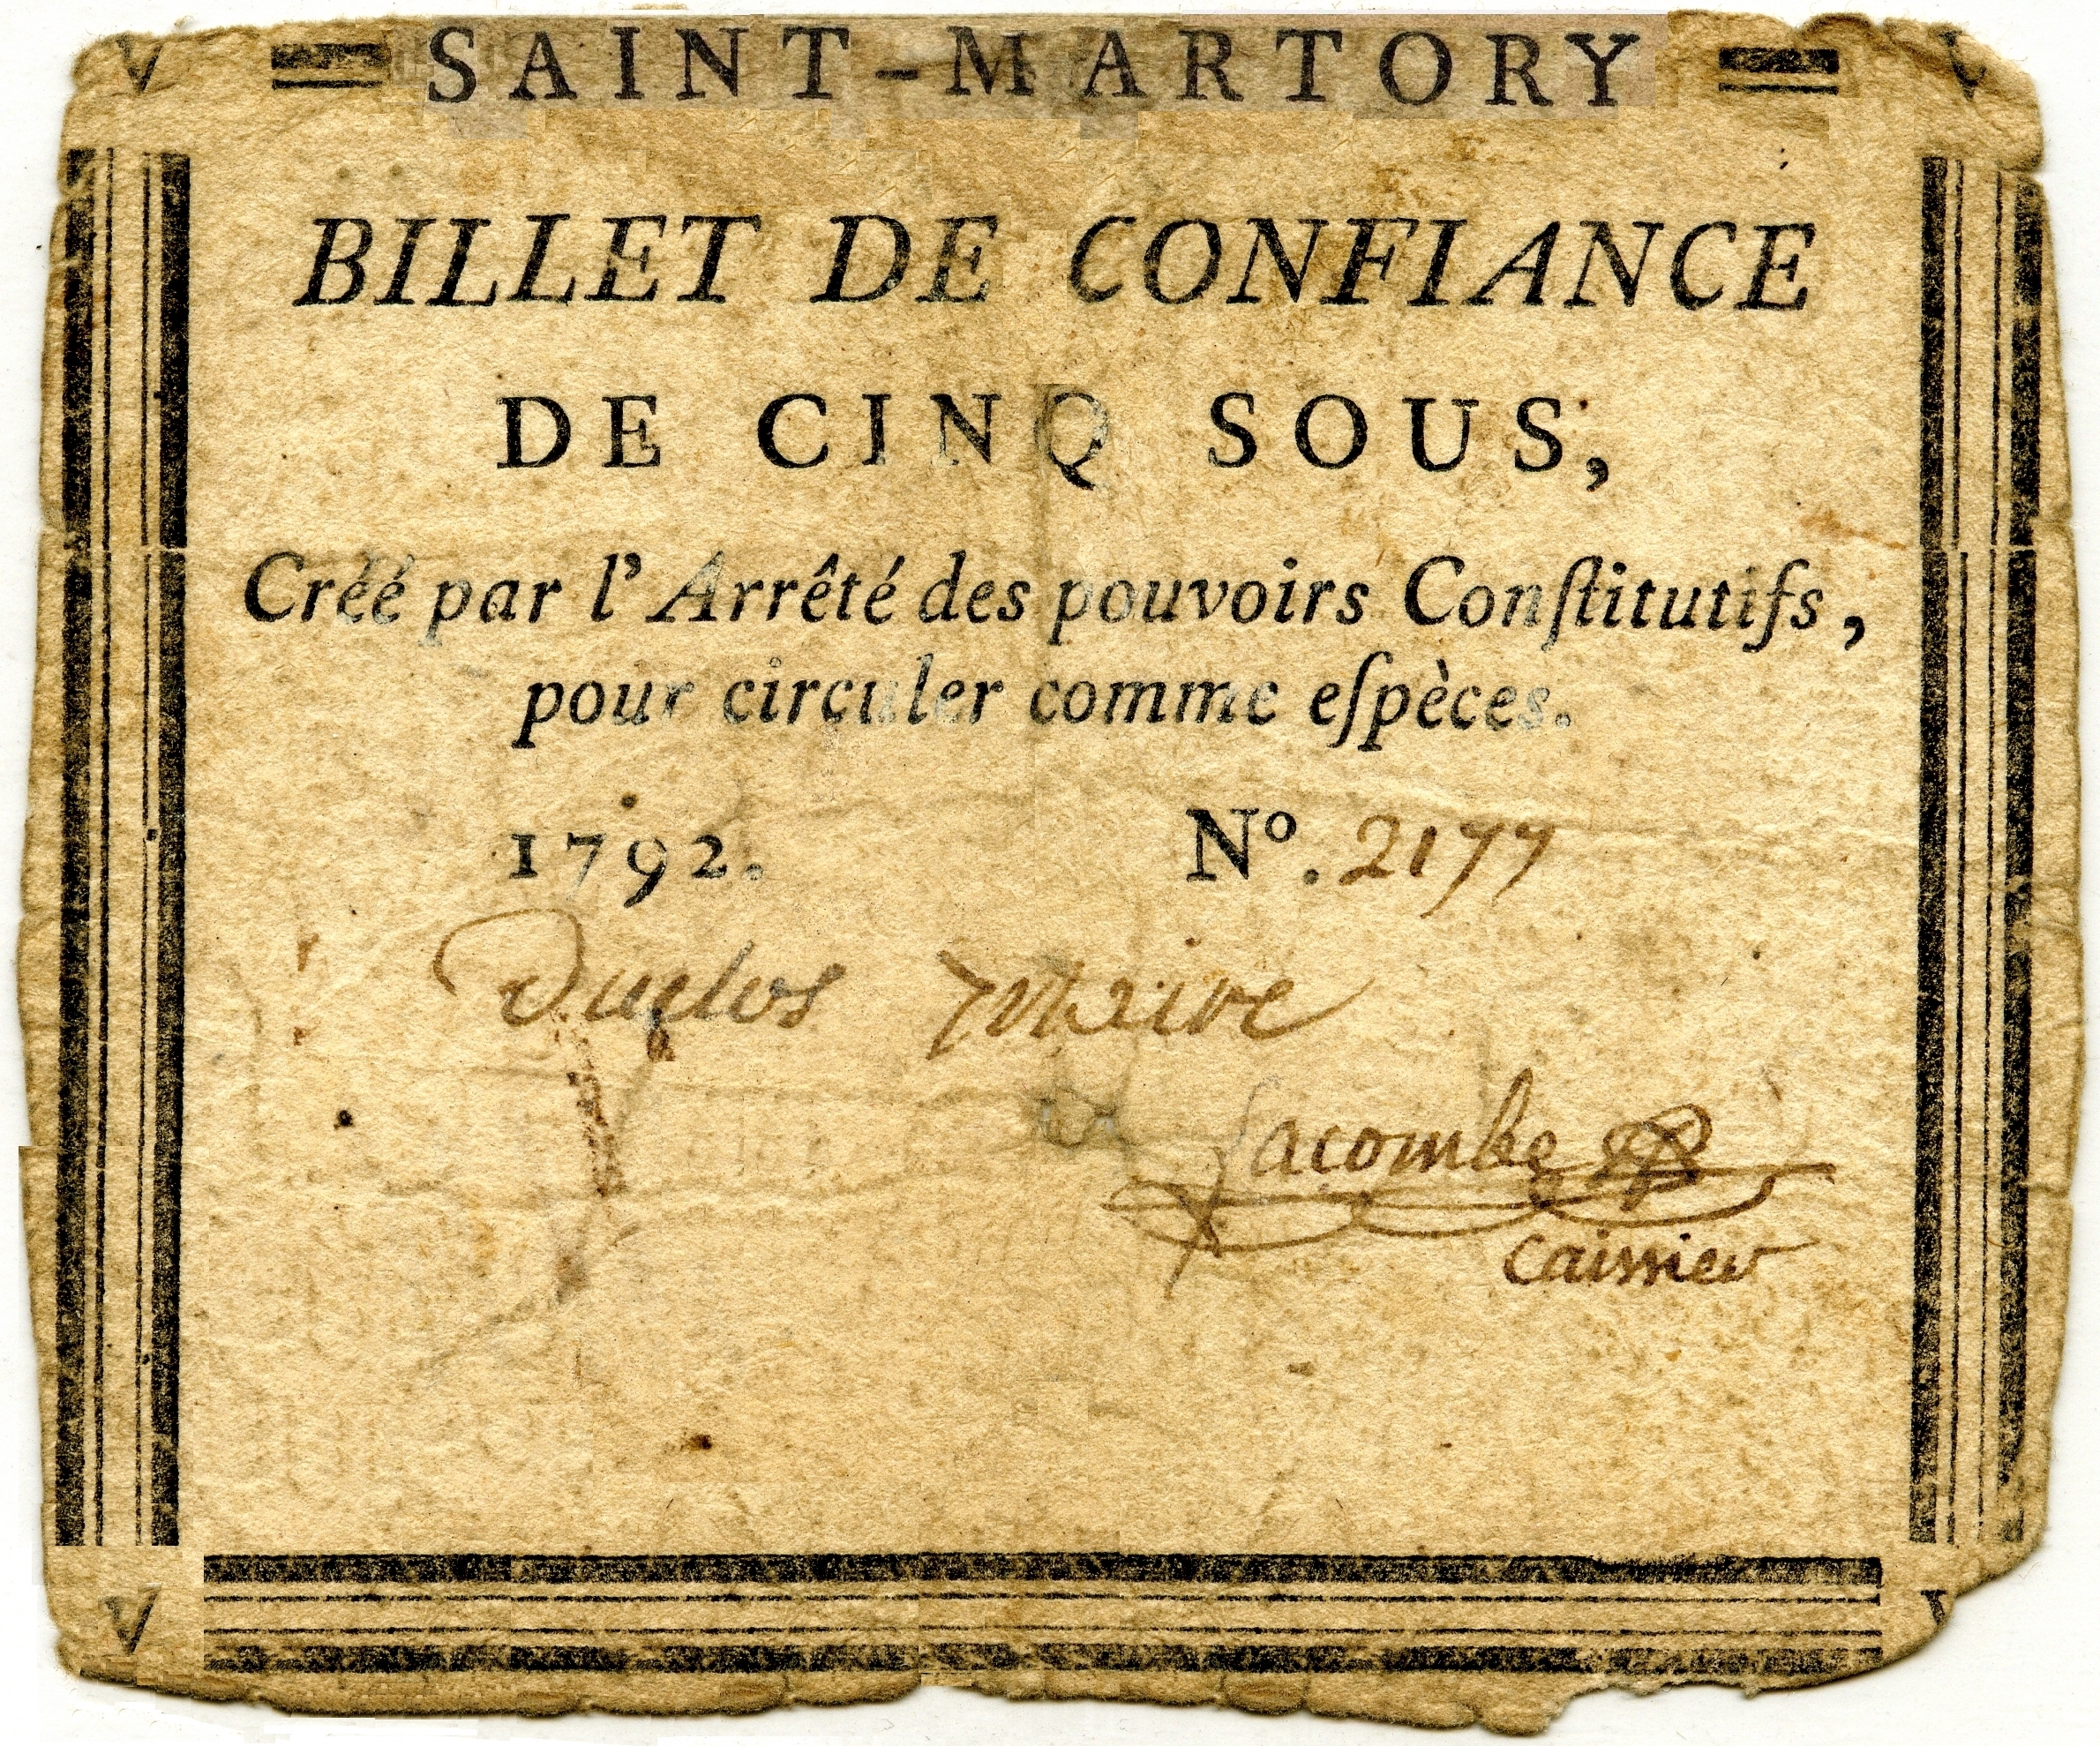 V SAINT-MARTORY V
BILLET DE CONFIANCE
DE CINQ SOUS,
Créé par l'Arrêté des pouvoirs Conſtitutifs,
pour circuler comme eſpèces.
1792. Nº. 2177
Duclos maire
Lacombe
Caissier
V V